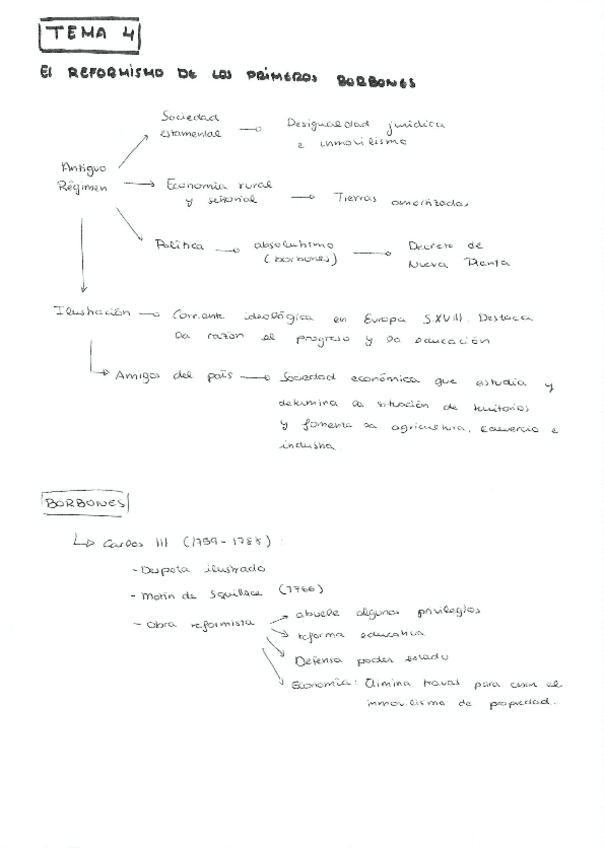 TEMA 4
El REFORMISMO DE LOS PRIMEROS BORBONES
Sociedad
estamental
Desigualdad jurídica
e inmovilismo
Antiguo
Régimen
Economía rural
y señorial
Tierras amortizadas
Política
absolutismo
(borbones)
Decreto de
Nueva Planta
Ilustración
Corriente ideológica en Europa S.XVIII. Destaca
la razón el progreso y la educación
Amigos del país
Sociedad económica que estudia y
determina la situación de territorios
y fomenta la agricultura, comercio e
industria.
BORBONES
Carlos III (1759-1788):
- Despota ilustrado
- Motín de Squilace (1766)
- Obra reformista
abuele algunos privilegios
reforma educativa
Defensa poder estado
Economía: Elimina travas para el
inmovilismo de propiedad.